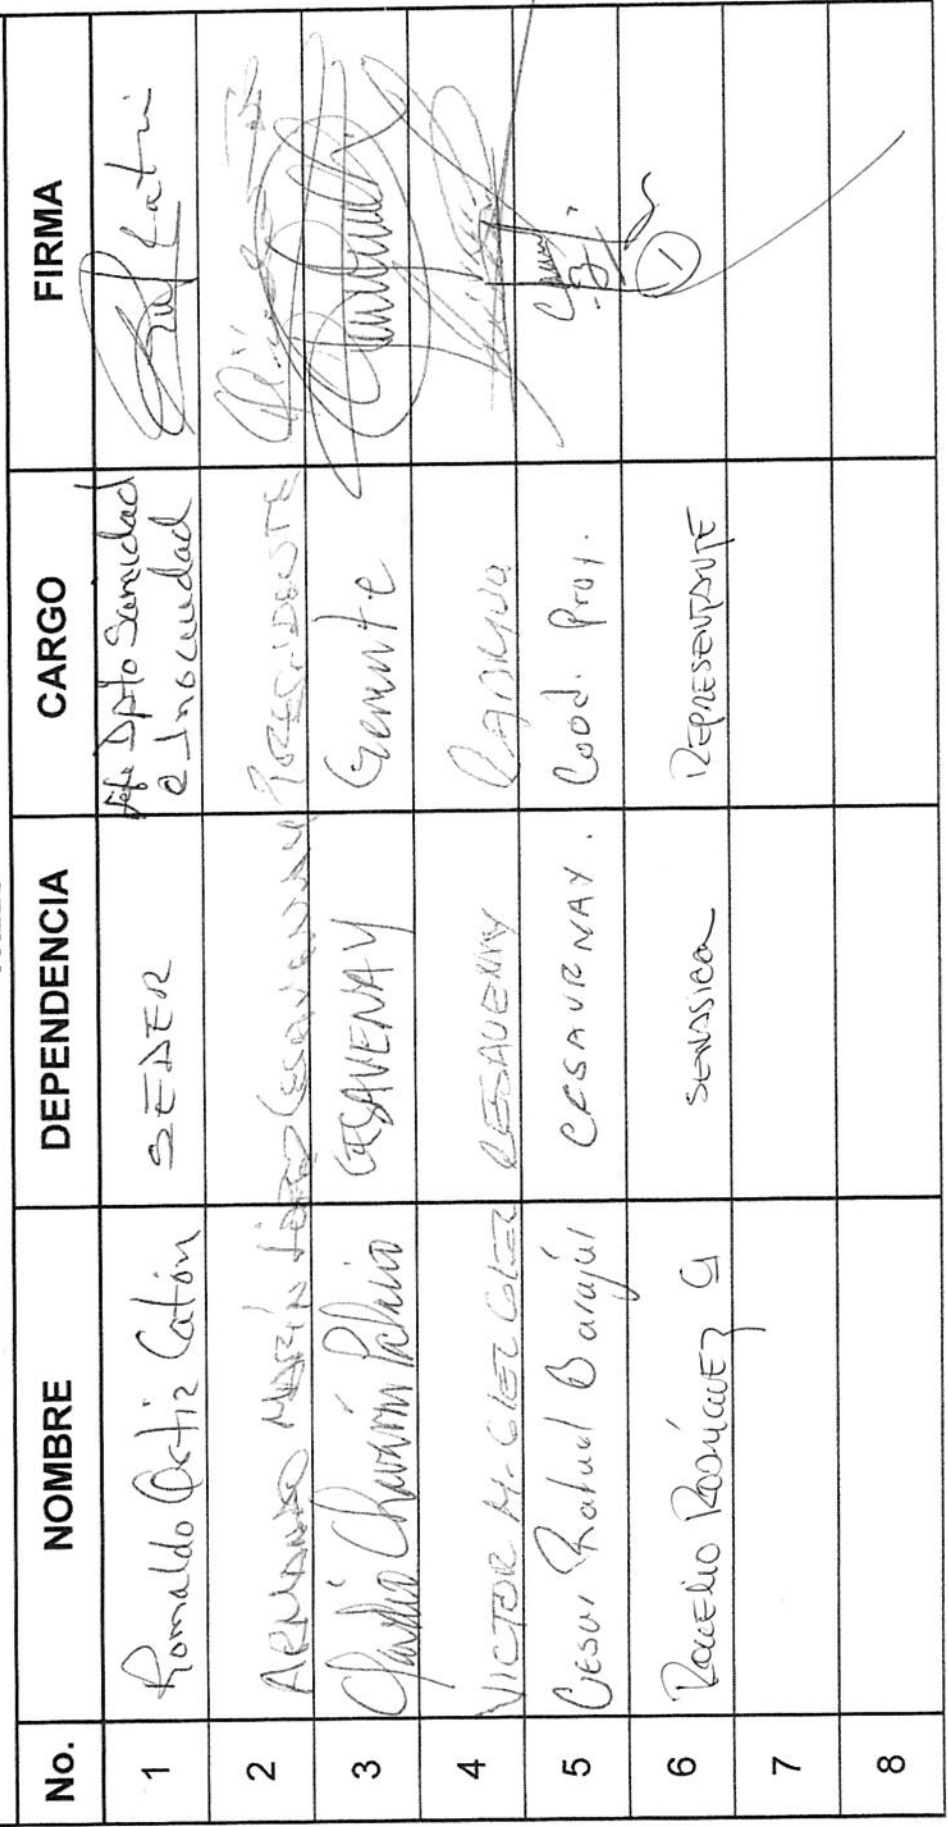 No. NOMBRE DEPENDENCIA CARGO FIRMA
1 Romaldo Ortiz Catón SEDER Jefe Dpto Sanidad
e Inocuidad
2 ARMANDO MARÍN LÓPEZ CESAVENAY PRESIDENTE
3 Claudio Chavarín Palacio CESAVENAY Gerente
4 VICTOR M. GLEZ GLEZ CESAVENAY
5 Cesar Rafael CESAVENAY. Cood. Proy.
6 ROGELIO RODRÍGUEZ G SENASICA REPRESENTANTE
7
8